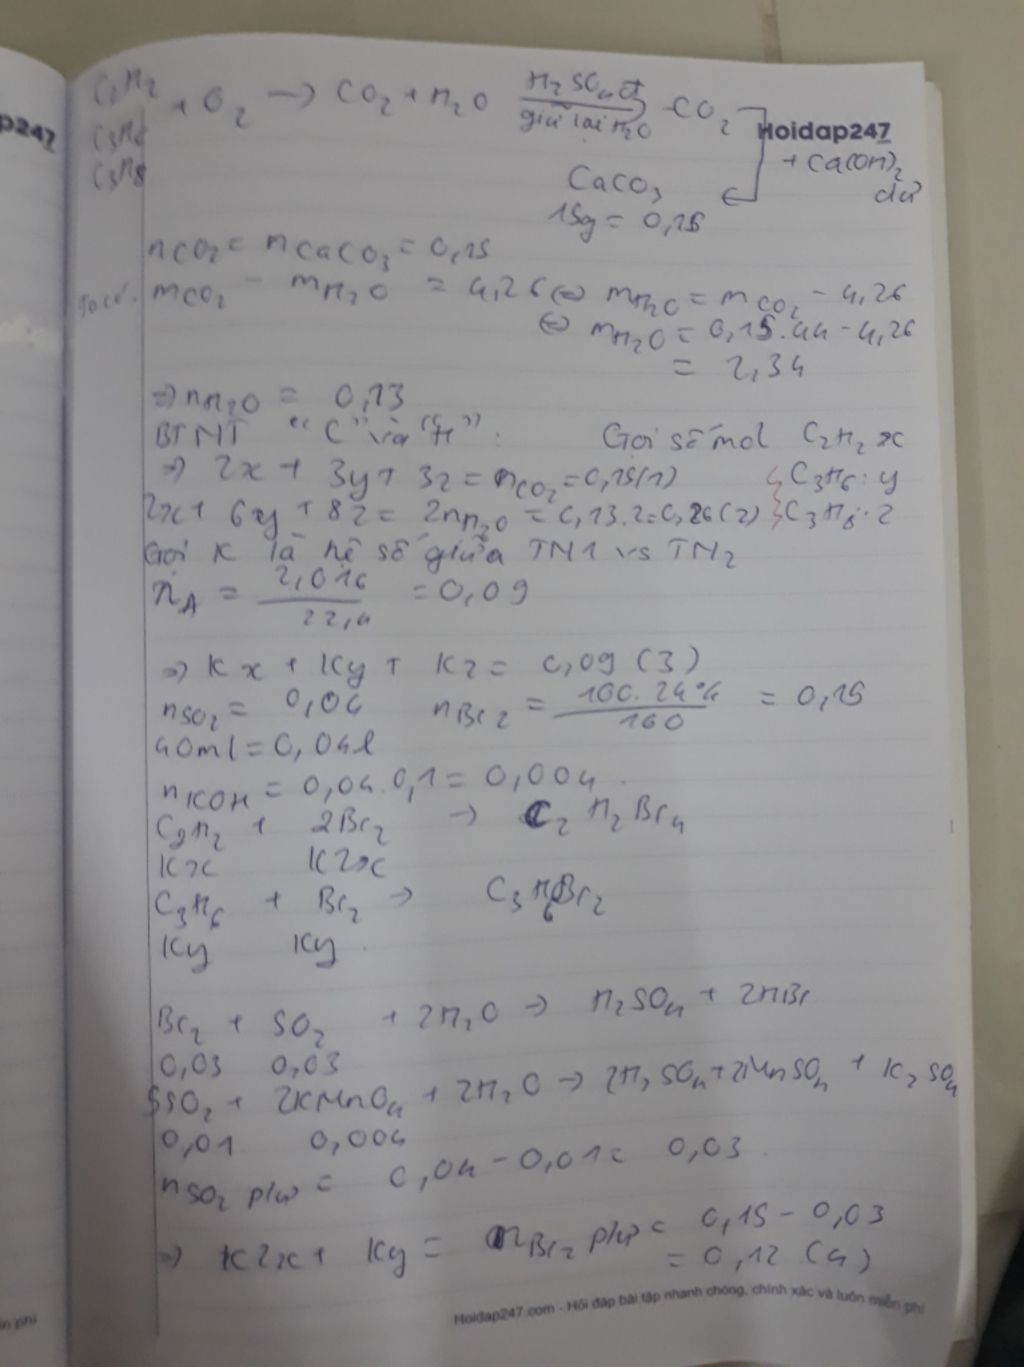 C₂H₂
C₃H₆
C₃H₈
+ O₂ → CO₂ + H₂O
H₂SO₄đ
giữ lại H₂O
CO₂
Hoidap247
+ Ca(OH)₂
dư
CaCO₃
15g = 0,15
nCO₂ = nCaCO₃ = 0,15
mCO₂ - mH₂O = 4,26 ⇔ mH₂O = mCO₂ - 4,26
⇔ mH₂O = 0,15.44 - 4,26
= 2,34
⇒ nH₂O = 0,13
BTNT "C" và "H": Gọi số mol C₂H₂ x
⇒ 2x + 3y + 3z = nCO₂ = 0,15(1) C₃H₆: y
2x + 6y + 8z = 2nH₂O = 0,13.2 = 0,26(2) C₃H₈: z
Gọi K là hệ số giữa TN1 vs TN2
nA = 2,016/22,4 = 0,09
⇒ Kx + Ky + Kz = 0,09 (3)
nSO₂ = 0,04 nBr₂ = 100.24%/160 = 0,15
40ml = 0,04l
nKOH = 0,04.0,1 = 0,004.
C₂H₂ + 2Br₂ → C₂H₂Br₄
Kx K2x
C₃H₆ + Br₂ → C₃H₆Br₂
Ky Ky.
Br₂ + SO₂ + 2H₂O → H₂SO₄ + 2HBr
0,03 0,03
5SO₂ + 2KMnO₄ + 2H₂O → 2H₂SO₄ + 2MnSO₄ + K₂SO₄
0,01 0,004
nSO₂ p/ư = 0,04 - 0,01 = 0,03
⇒ K2x + Ky = nBr₂ p/ư = 0,15 - 0,03
= 0,12 (4)
Hoidap247.com - Hỏi đáp bài tập nhanh chóng, chính xác và luôn miễn phí